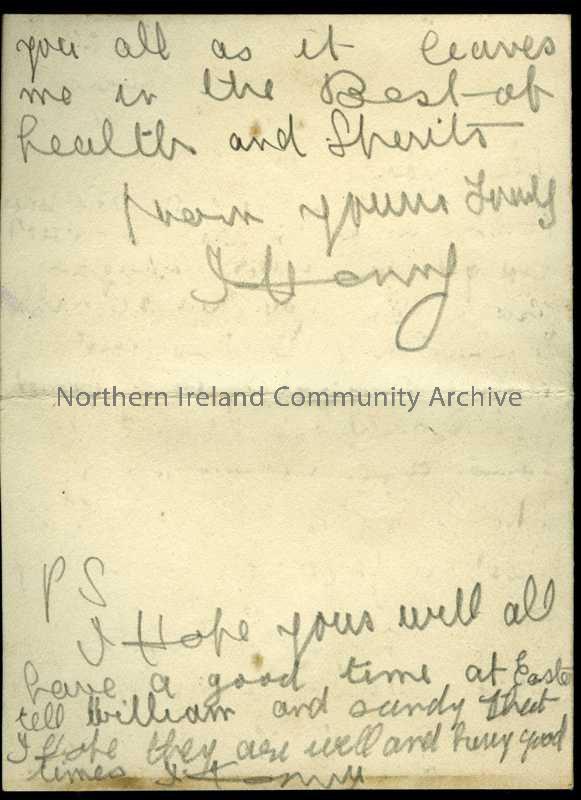 you all as it leaves
me in the Best of
health and Sperits
from yours Truly
J Hanny
Northern Ireland Community Archive
PS
I Hope yous will all
have a good time at Easte
tell William and sandy that
I Hope they are well and good
times J Hanny